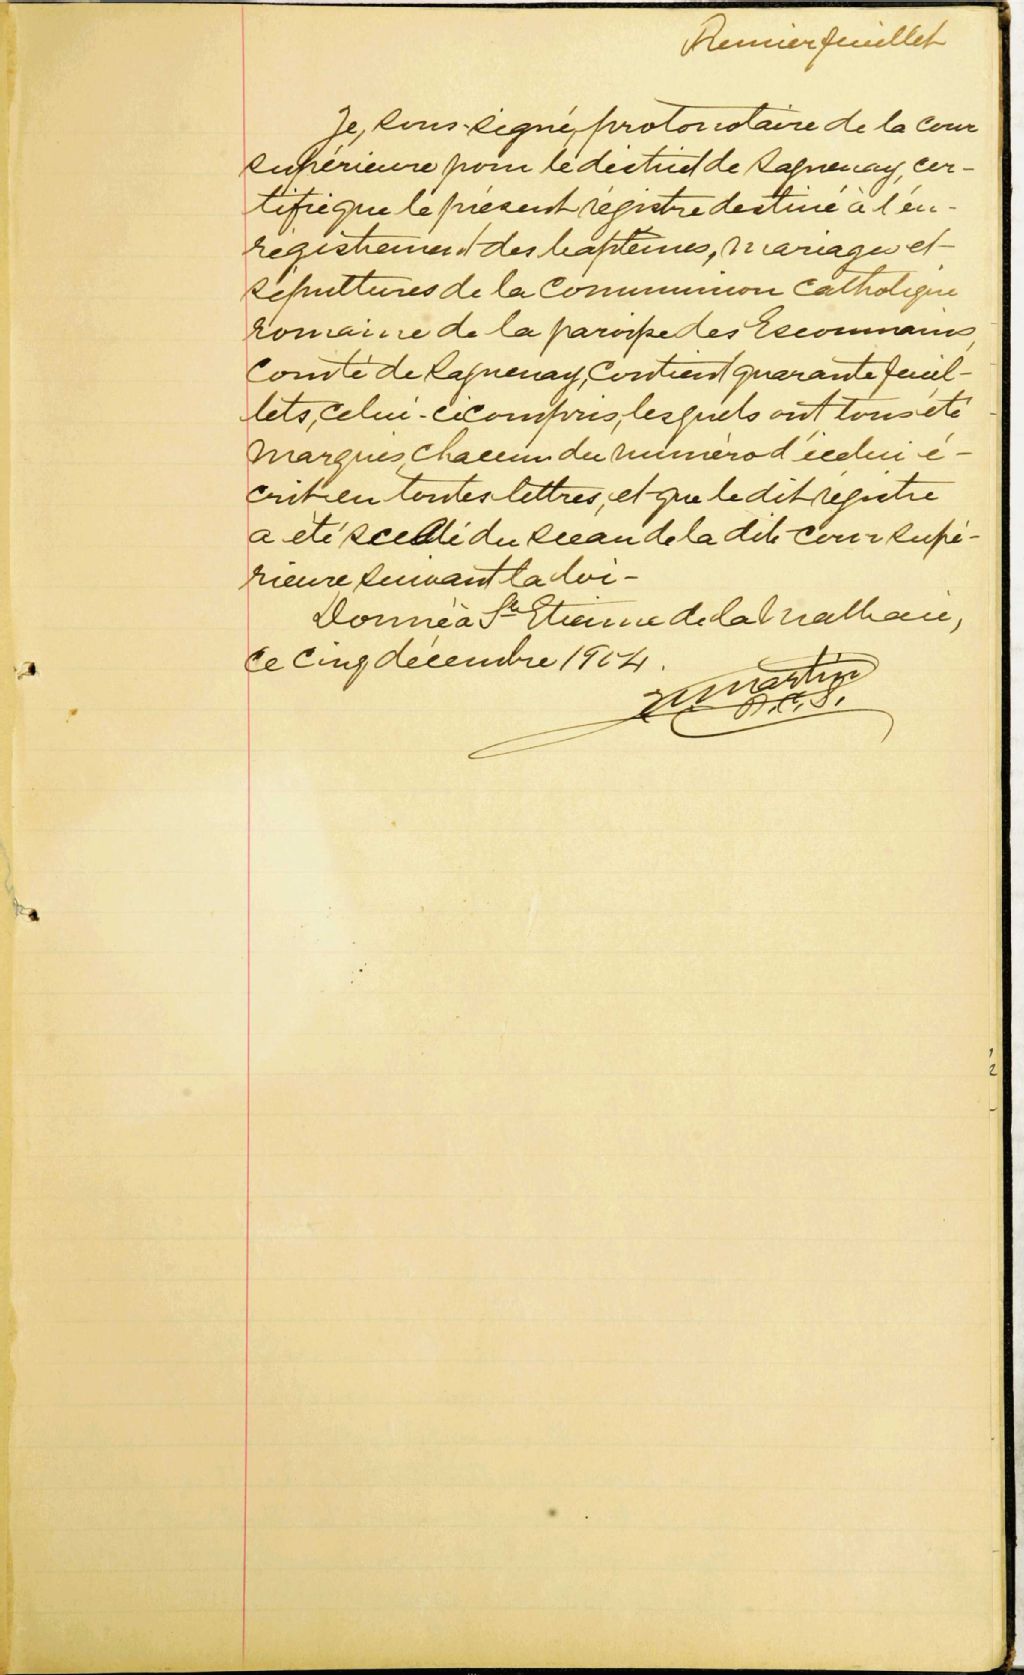 Premier feuillet
Je, sous-signé, protonotaire de la cour
supérieure pour le district de Saguenay, cer-
tifie que le présent régistre destiné à l'én-
régistrement des baptêmes, mariages et
sépultures de la Communion Catholique
romaine de la paroisse des Escoumains,
Comté de Saguenay, contient quarante feuil-
lets, celui-ci compris, lesquels ont tous été
marqués, chacun du numéro d'icelui é-
crit en toutes lettres, et que le dit régistre
a été scellé du sceau de la dite cour supé-
rieure suivant la loi -
Donné à St Etienne de la Malbaie,
ce cinq décembre 1904.
Martin
P.C.S.